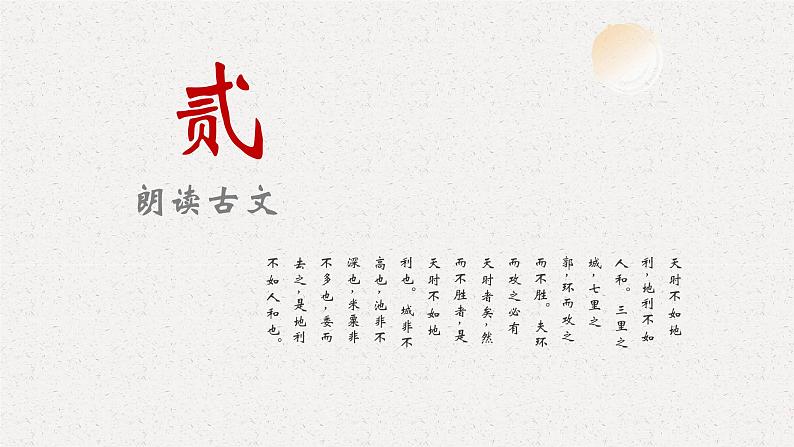 贰
朗读古文
天时不如地
利，地利不如
人和。三里之
城，七里之
郭，环而攻之
而不胜。夫环
而攻之必有
天时者矣，然
而不胜者，是
天时不如地
利也。城非不
高也，池非不
深也，米粟非
不多也，委而
去之，是地利
不如人和也。